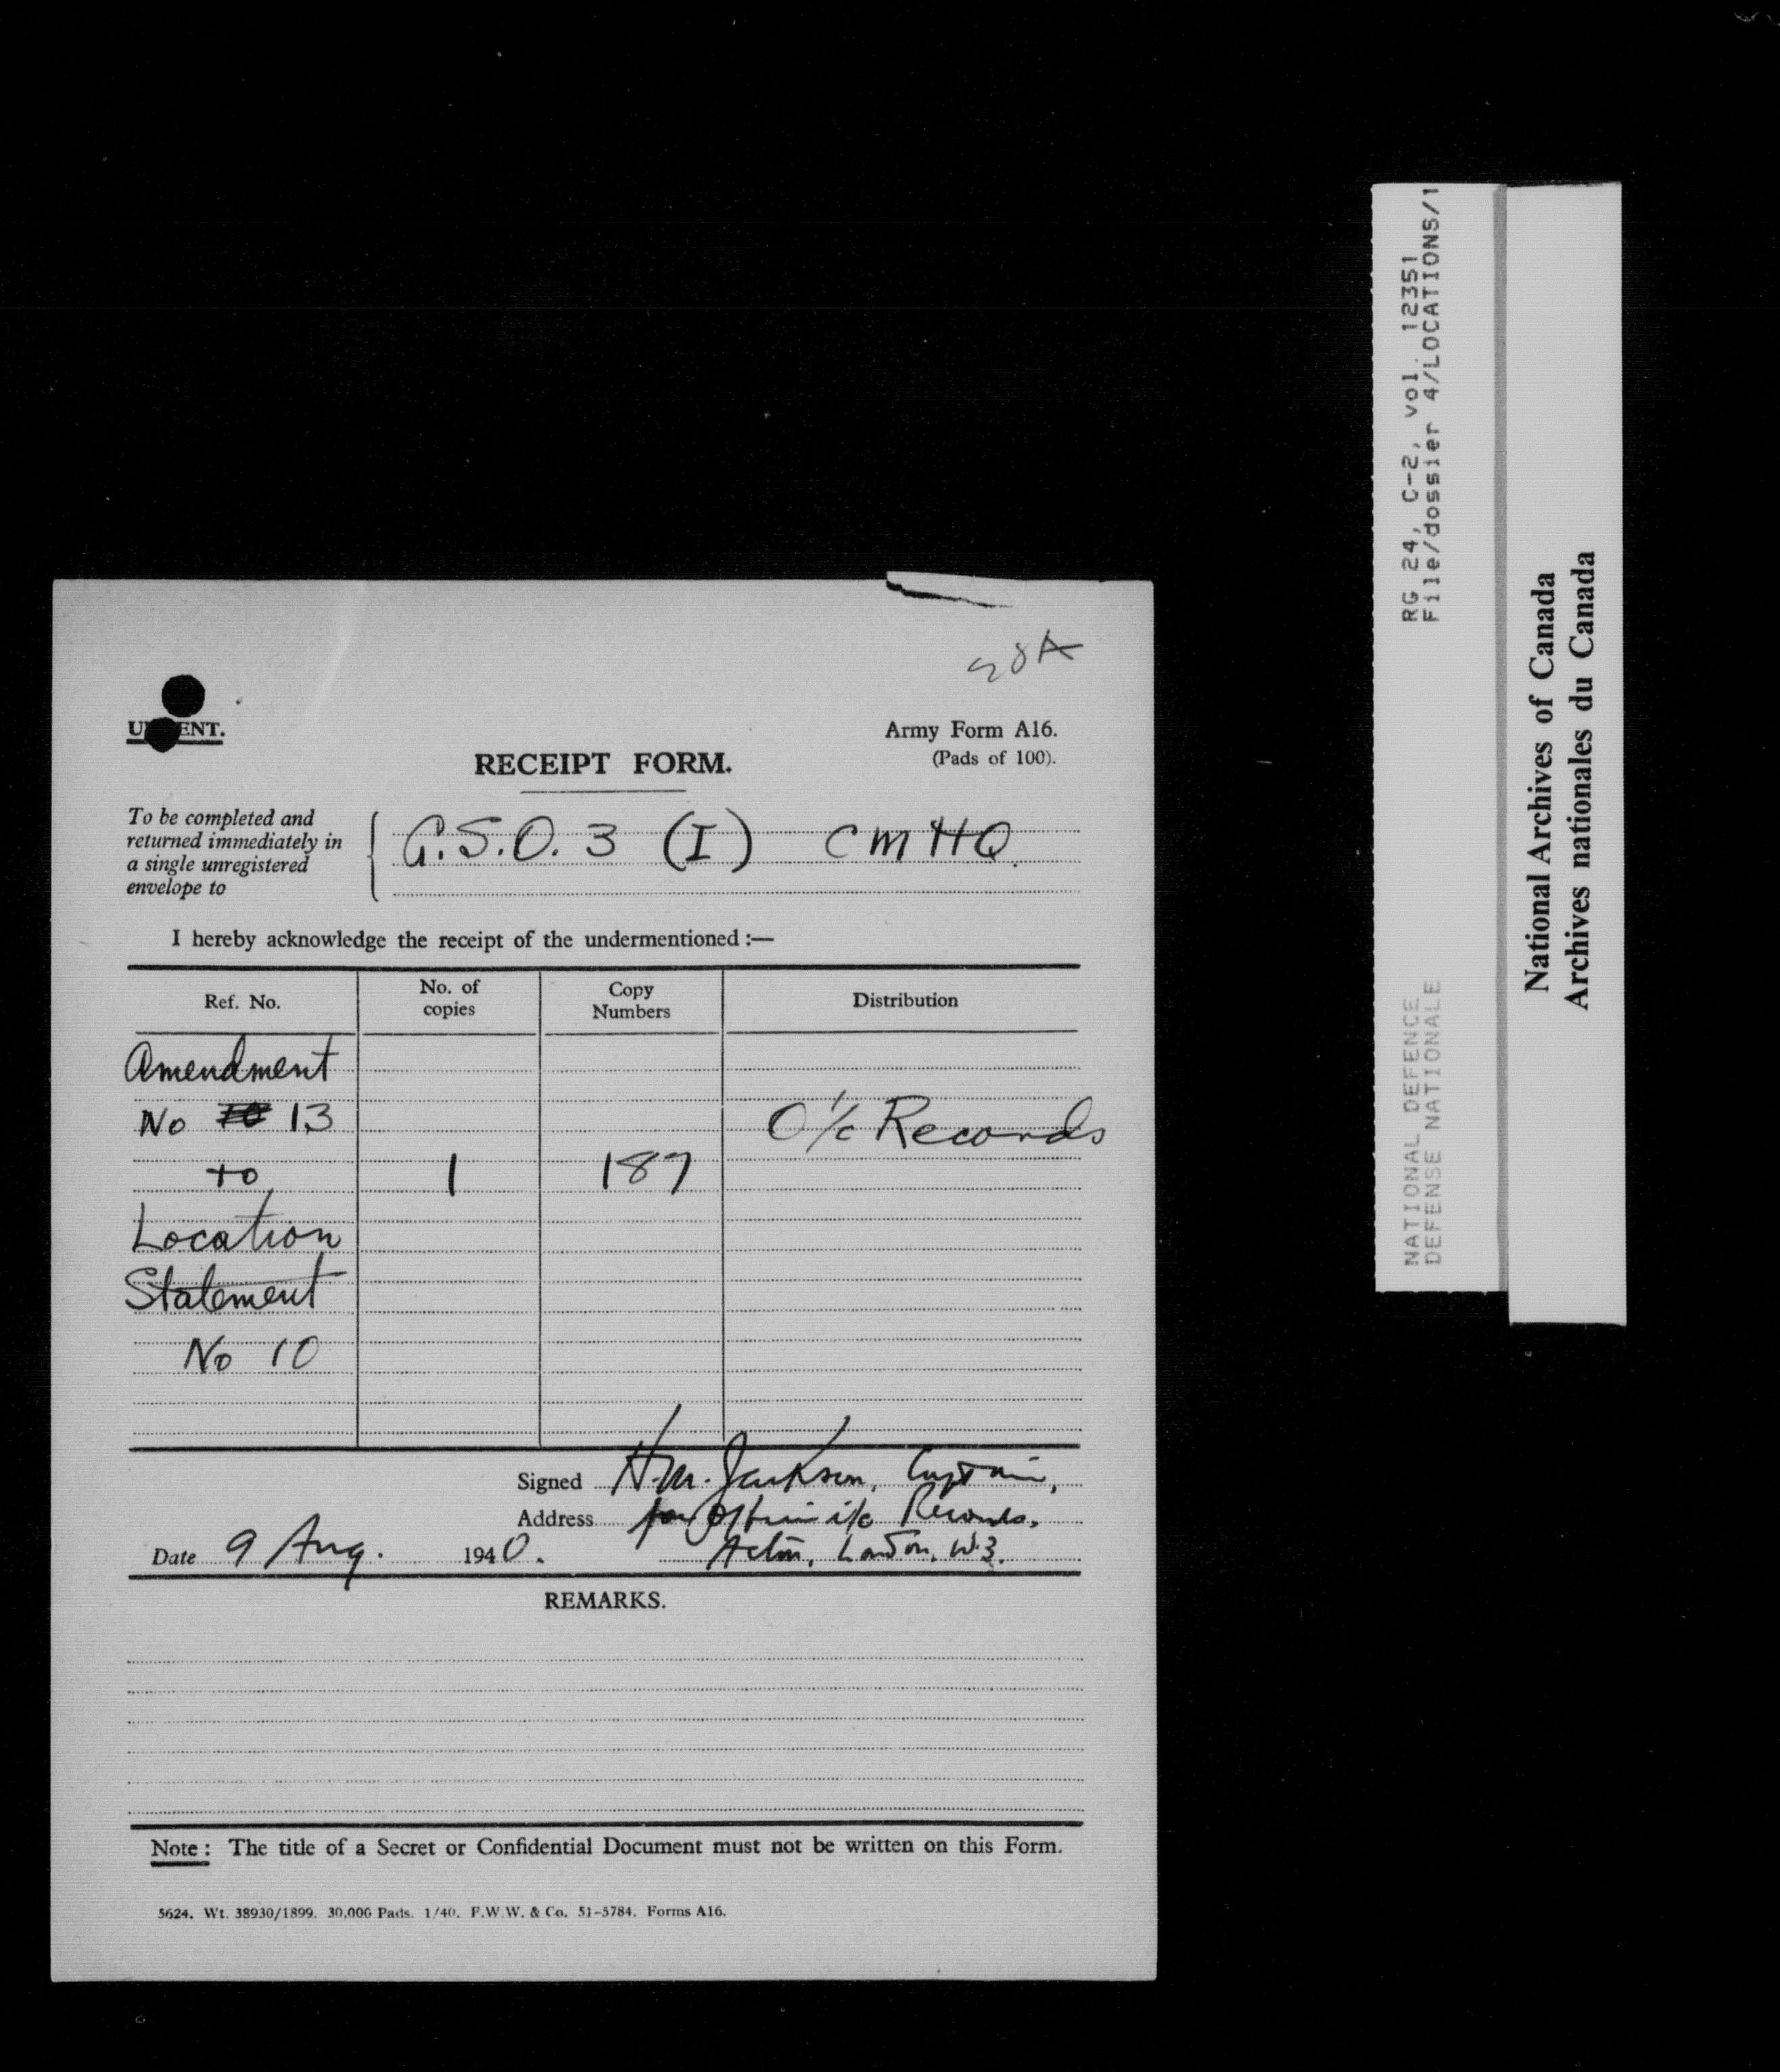 98A
URGENT.
Army Form A16.
(Pads of 100).
RECEIPT FORM.
To be completed and
returned immediately in
a single unregistered
envelope to
G.S.O. 3 (I) CMHQ.
I hereby acknowledge the receipt of the undermentioned :—
Ref. No.
No. of
copies
Copy
Numbers
Distribution
Amendment
No 10 13
to
Location
Statement
No 10
1
187
O i/c Records
Signed H.M. Jackson, Captain,
Address for Officer i/c Records,
Acton, London. W.3.
Date 9 Aug. 1940.
REMARKS.
Note : The title of a Secret or Confidential Document must not be written on this Form.
5624. Wt. 38930/1899. 30,000 Pads. 1/40. F.W.W. & Co. 51-5784. Forms A16.
RG 24, C-2, vol. 12351
File/dossier 4/LOCATIONS/1
NATIONAL DEFENCE
DEFENSE NATIONALE
National Archives of Canada
Archives nationales du Canada